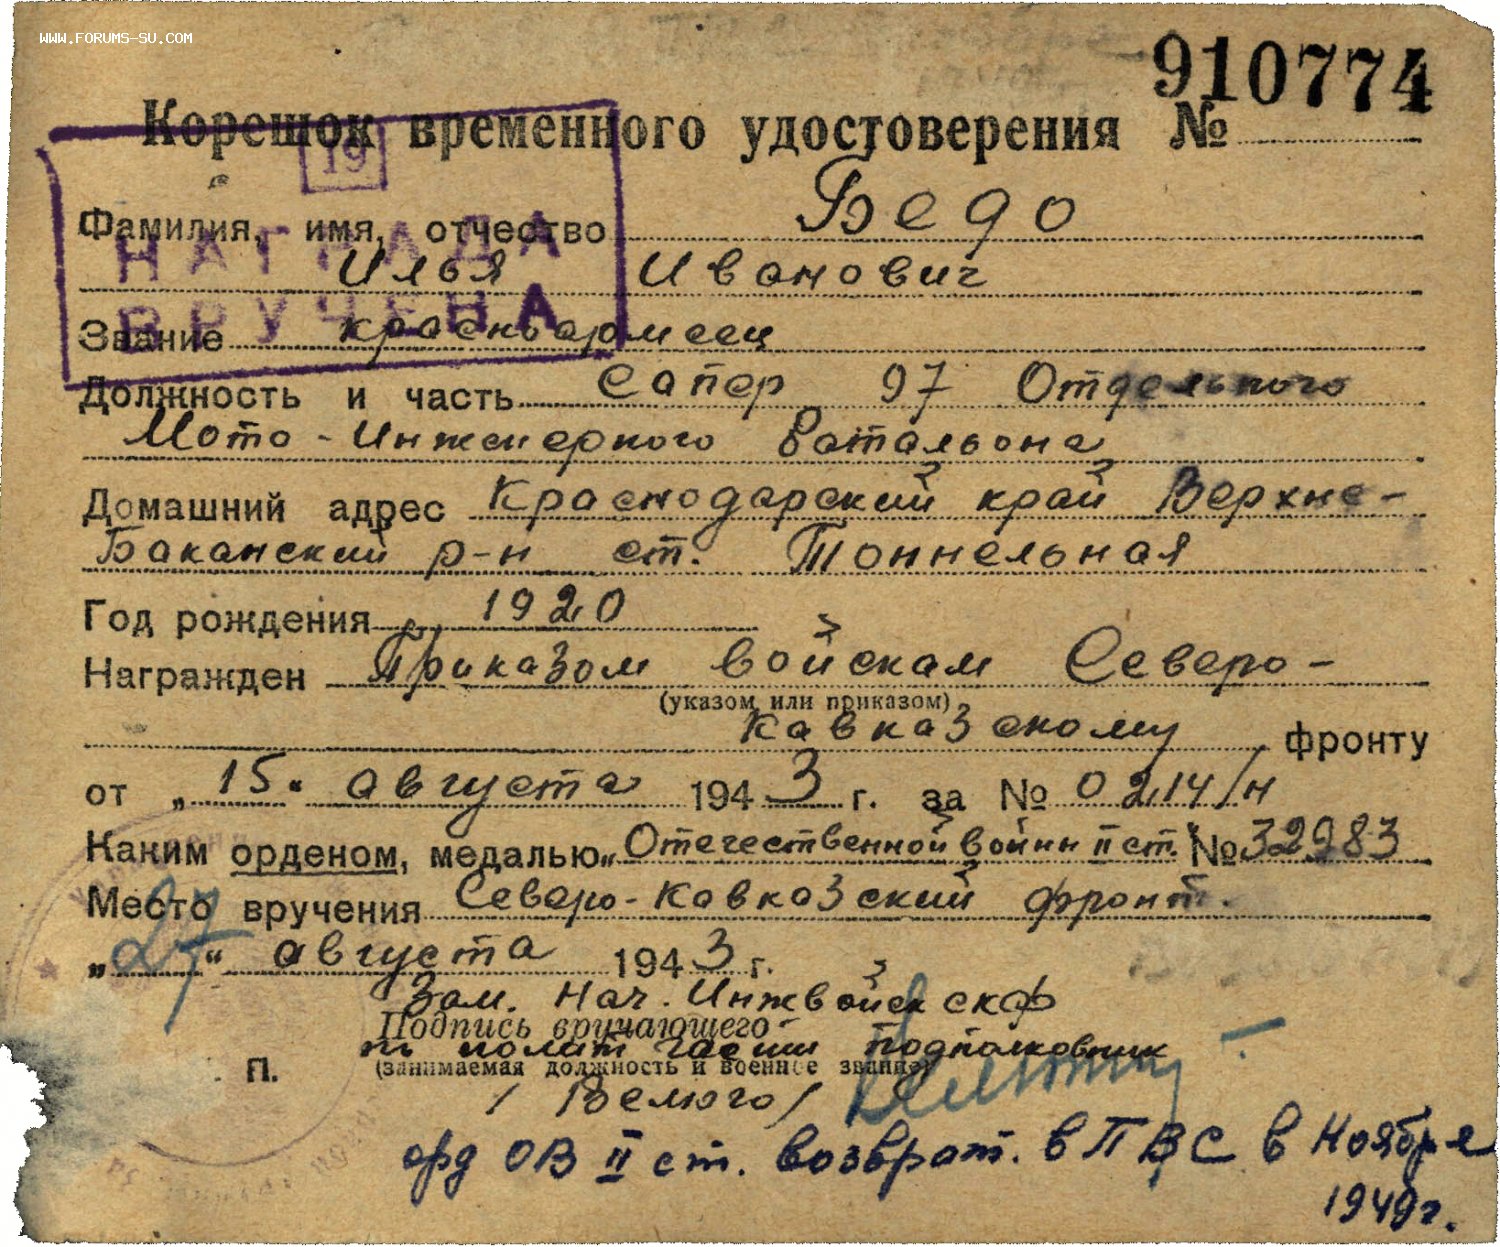 WWW.FORUMS-SU.COM
910774
Корешок временного удостоверения №
19
НАГРАДА
ВРУЧЕНА
Фамилия, имя, отчество Бедо
Илья Иванович
Звание красноармеец
Должность и часть Сапер 97 Отдельного
Мото-Инженерного батальона
Домашний адрес Краснодарский край Верхне-
Баканский р-н ст. Тоннельная
Год рождения 1920
Награжден Приказом войскам Северо-
(указом или приказом)
Кавказскому фронту
от „15“ августа 1943 г. за № 0214/н
Каким орденом, медалью „Отечественной войны II ст. № 32983
Место вручения Северо-Кавказский фронт.
„27“ августа 1943 г.
Зам. Нач. Инжвойск СКФ
Подпись вручающего
по полит части подполковник
(занимаемая должность и военное звание)
П.
/Велюго/
орд ОВ II ст. возврат. в ПВС в Ноябре
1949г.